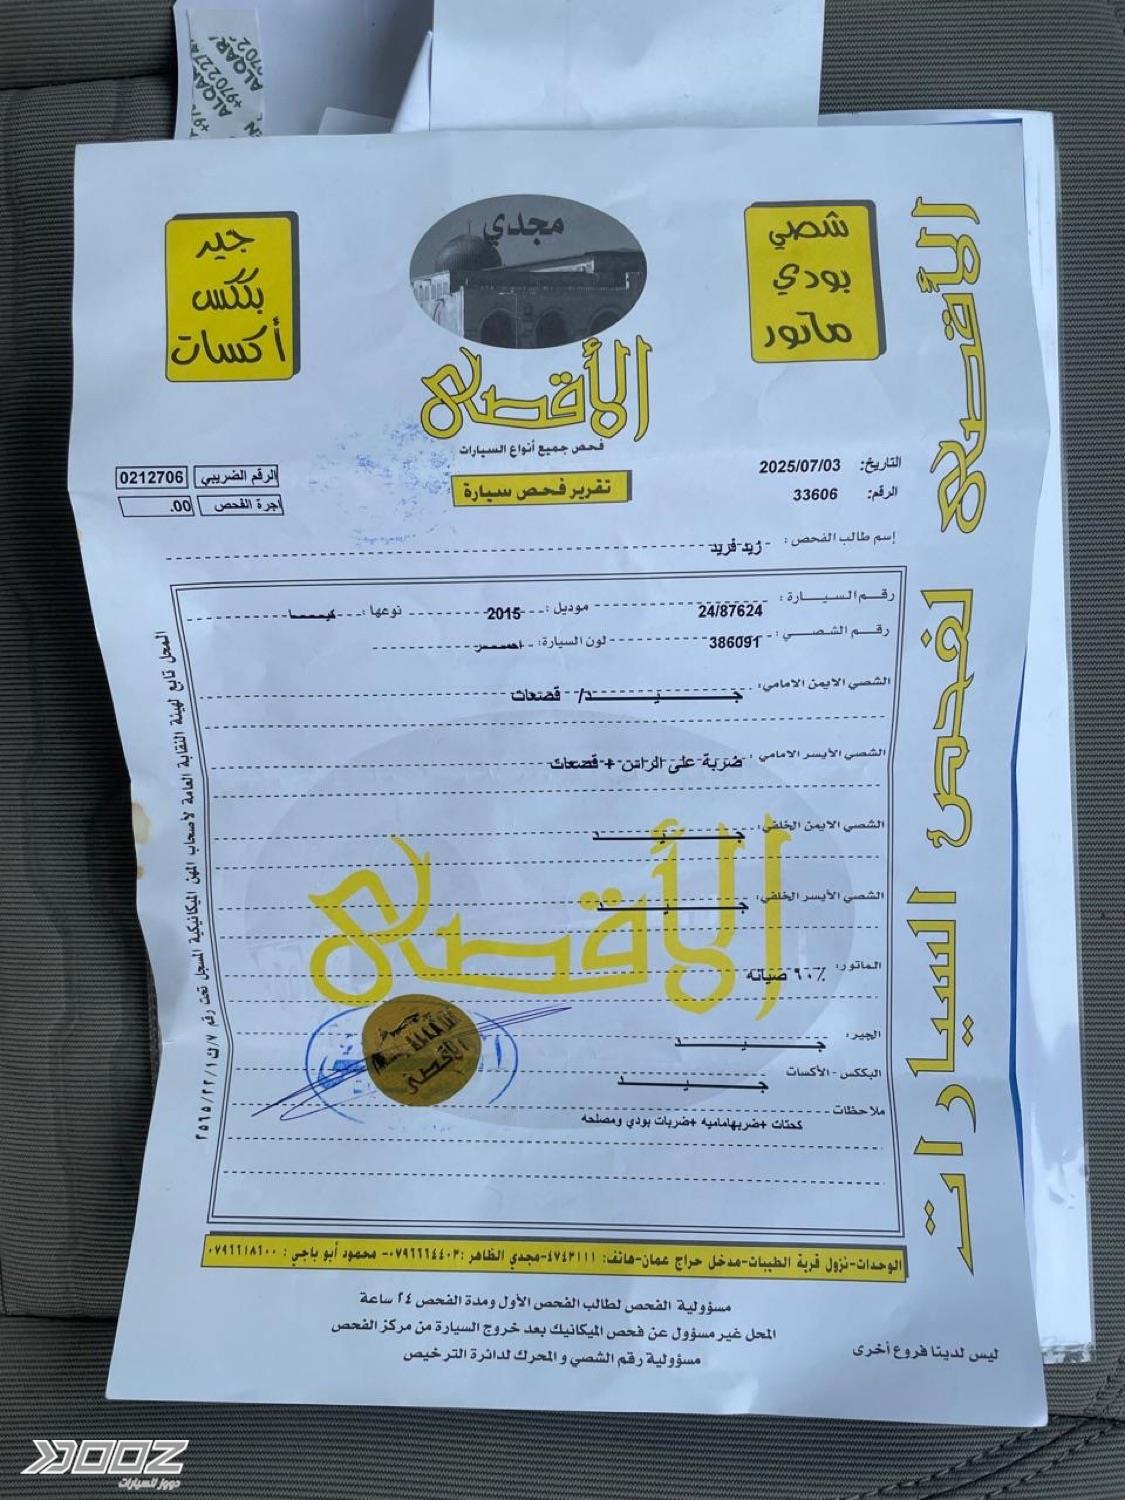 مجدي
الأقصى
فحص جميع أنواع السيارات
تقرير فحص سيارة
شصي
بودي
ماتور
جير
بكس
أكسات
الأقصى لفحص السيارات
التاريخ: 2025/07/03
الرقم: 33606
الرقم الضريبي 0212706
اجرة الفحص .00
إسم طالب الفحص: زيد فريد
رقم السيارة: 24/87624 موديل: 2015 نوعها: كيا
رقم الشصي: 386091 لون السيارة: احمر
الشصي الايمن الامامي: جيد/ قصعات
الشصي الأيسر الامامي: ضربة على الراس + قصعات
الشصي الايمن الخلفي: جيد
الشصي الأيسر الخلفي: جيد
الماتور: ٦٠٪ صيانه
الجير: جيد
البككس - الأكسات جيد
ملاحظات
كحتات +ضربهاماميه +ضربات بودي ومصلحه
الأقصى
المحل تابع لهيئة النقابة العامة لأصحاب المهن الميكانيكية المسجل تحت رقم
الوحدات-نزول قرية الطيبات-مدخل حراج عمان-هاتف: ٤٧٤٣١١١-مجدي الظاهر :٠٧٩٦٦٦٤٤٠٣- محمود أبو باجي : ٠٧٩٦٦١٨٦٠٠
مسؤولية الفحص لطالب الفحص الأول ومدة الفحص ٢٤ ساعة
المحل غير مسؤول عن فحص الميكانيك بعد خروج السيارة من مركز الفحص
مسؤولية رقم الشصي و المحرك لدائرة الترخيص
ليس لدينا فروع أخرى
دووز للسيارات